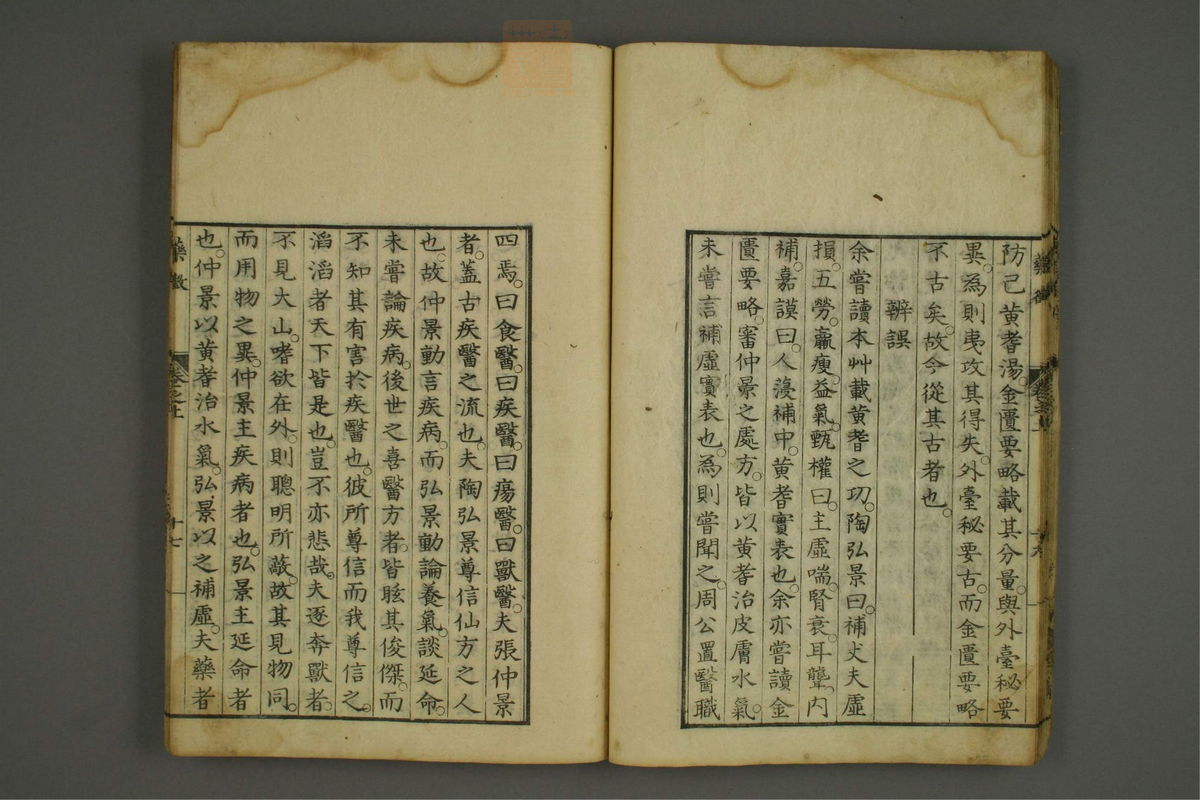 防己黃耆湯。金匱要略載其分量。與外臺秘要
異。為則夷攷其得失。外臺秘要古。而金匱要略
不古矣。故今從其古者也。
辨誤
余嘗讀本艸載黃耆之功。陶弘景曰。補丈夫虛
損。五勞。羸瘦。益氣。甄權曰。主虛喘。腎衰。耳聾。內
補。嘉謨曰。人薓補中。黃耆實表也。余亦嘗讀金
匱要略。審仲景之處方。皆以黃耆治皮膚水氣。
未嘗言補虛實表也。為則嘗聞之。周公置醫職
四焉。曰食醫。曰疾醫。曰瘍醫。曰獸醫。夫張仲景
者。蓋古疾醫之流也。夫陶弘景尊信仙方之人
也。故仲景動言疾病。而弘景動論養氣。談延命。
未嘗論疾病。後世之喜醫方者。皆眩其俊傑。而
不知其有害於疾醫也。彼所尊信而我尊信之。
滔滔者天下皆是也。豈不亦悲哉。夫逐奔獸者。
不見大山。嗜欲在外。則聰明所蔽。故其見物同。
而用物之異。仲景主疾病者也。弘景主延命者
也。仲景以黃耆治水氣。弘景以之補虛。夫藥者
藥徵
卷之上
十七